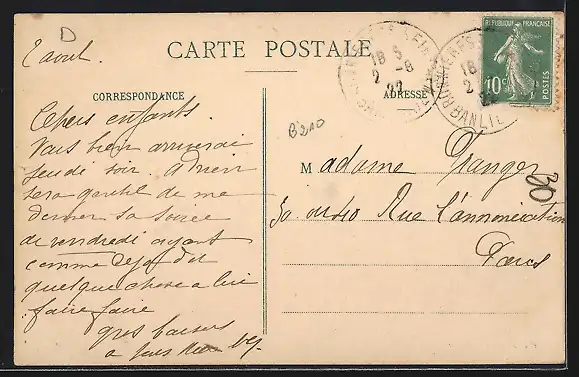 D
2 aout.
CARTE POSTALE
CORRESPONDANCE
ADRESSE
REPUBLIQUE FRANÇAISE
10c
POSTES
18 5
2 -8
22
18
2
B210
Chers enfants.
Vais bien arriverai
jeudi soir. Adrien
sera gentil de me
donner sa soirée
de vendredi ayant
comme déjà dit
quelque chose à lui
faire faire
gros baisers
a
Madame Granger
30 ou 40 Rue l'annonciation
Paris
30